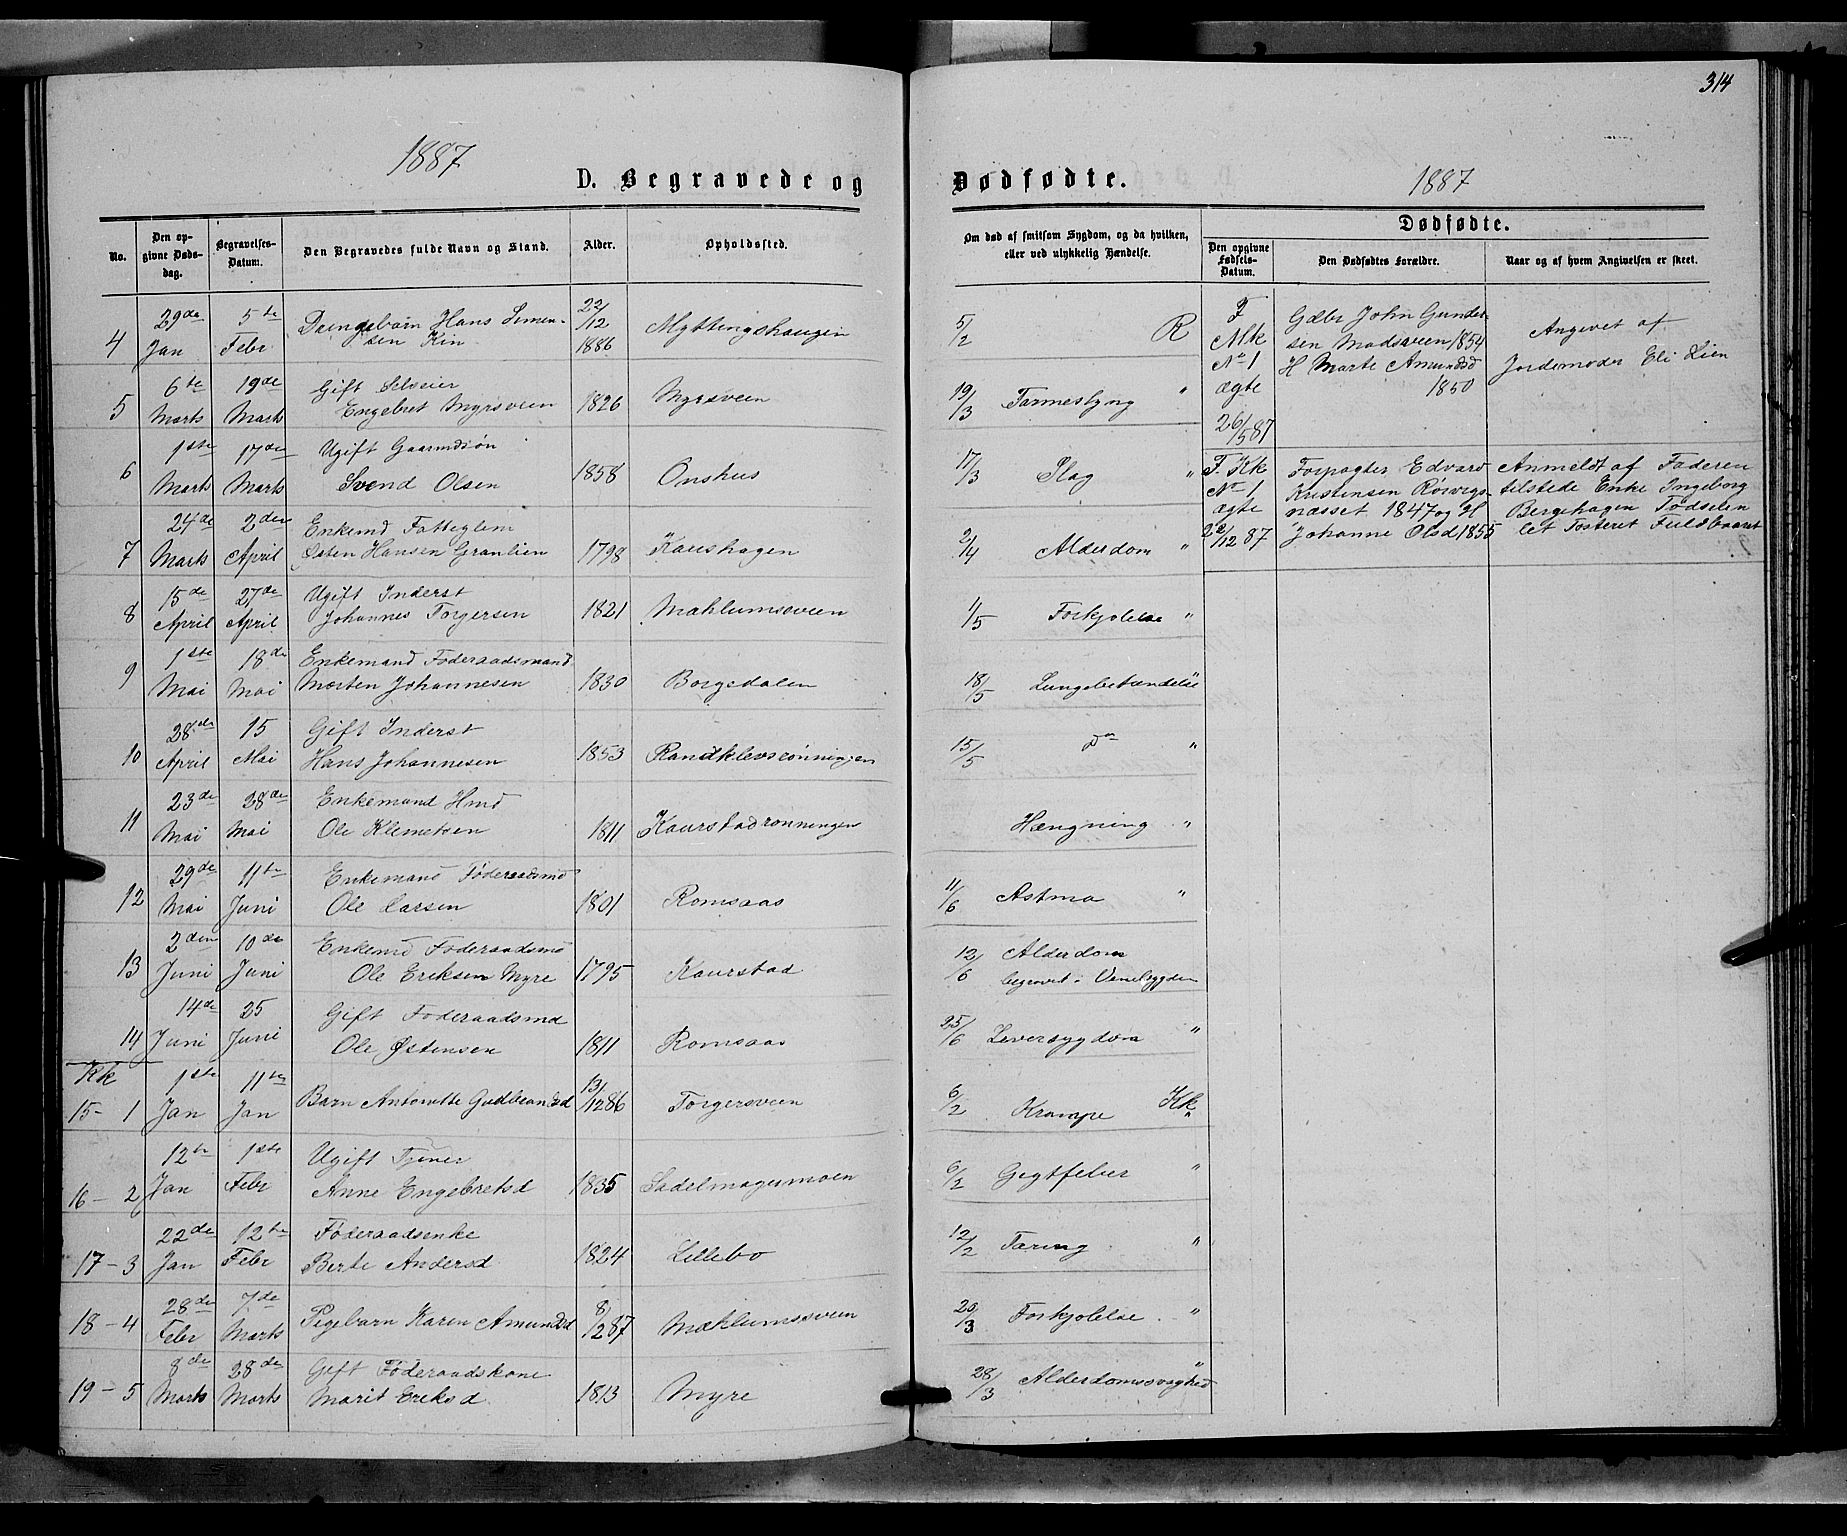 314
1887
D. Begravede og
Dødfødte.
1887
No.
Den opgivne Dødsdag.
Begravelses-Datum.
Den Begravedes fulde Navn og Stand.
Alder.
Opholdssted.
Om død af smitsom Sygdom, og da hvilken, eller ved ulykkelig Hændelse.
Dødfødte.
Den opgivne Fødsels-Datum.
Den Dødfødtes Forældre.
Naar og af hvem Angivelsen er skeet.
4 29de Jan 5te Febr Drengebarn Hans Simensen Kin 22/12 1886 Myttingshaugen 5/2 R
5 6te Marts 19de Marts Gift Selveier Engebret Myrsveen 1826 Myrsveen 19/3 "
6 1ste Marts 17de Marts Ugift Gaardmdsøn Svend Olsen 1858 Onshus 17/3 Slag "
7 24de Marts 2den April Enkemd Fatteglem Østen Hansen Granlien 1798 Kaushagen 2/4 Alderdom "
8 15de April 27de April Ugift Inderst Johannes Torgersen 1821 Mæhlumsveen 1/5 Forkjølelse "
9 1ste Mai 18de Mai Enkemand Føderaadsmand Morten Johannesen 1830 Borgedalen 18/5 Lungebetændelse
10 28de April 15 Mai Gift Inderst Hans Johannesen 1853 Randklevsrønningen 15/5 do "
11 23de Mai 28de Mai Enkemand Hmd Ole Klemetsen 1811 Kaurstadrønningen Hængning "
12 29de Mai 11te Juni Enkemand Føderaadsmd Ole Larsen 1801 Romsaas 11/6 Astma "
13 2den Juni 10de Juni Enkemd Føderaadsmd Ole Eriksen Myre 1795 Kaurstad 12/6 Alderdom begravet i Venebygden
14 14de Juni 25 Juni Gift Føderaadsmd Ole Østensen 1811 Romsaas 25/6 Leversygdom "
Kk
15 - 1 1ste Jan 11te Jan Barn Antonette Gudbrandsd 13/12 86 Torgersveen 6/2 Krampe Kk "
16 - 2 12te Jan 1ste Febr Ugift Tjener Anne Engebretsd 1835 Sadelmagermoen 6/2 Gigtfeber "
17 - 3 22de Jan 12te Febr Føderaadsenke Berte Andersd 1824 Lillebo 12/2 Tæring "
18 - 4 28de Febr 7de Marts Pigebarn Karen Amundsd 8/2 87 Mæhlumsveen 20/3 Forkjølelse "
19 - 5 8de Marts 28de Marts Gift Føderaadskone Marit Eriksd 1813 Myre 28/3 Alderdomssvaghed "
F Mk No 1 ægte 26/5 87
Gdbr John Gundersen Madsveen 1854 H Marte Amundsd 1850
Angivet af Jordemoder Eli Lien
F. Kk No 1 ægte 22/12 87
Forpagter Edvard Kristensen Rørvigsnæsset 1847 og H Johanne Olsd 1855
Anmeldt af Faderen tilstede Enke Ingeborg Bergehagen Fødselen let Fosteret Fuldbaaret